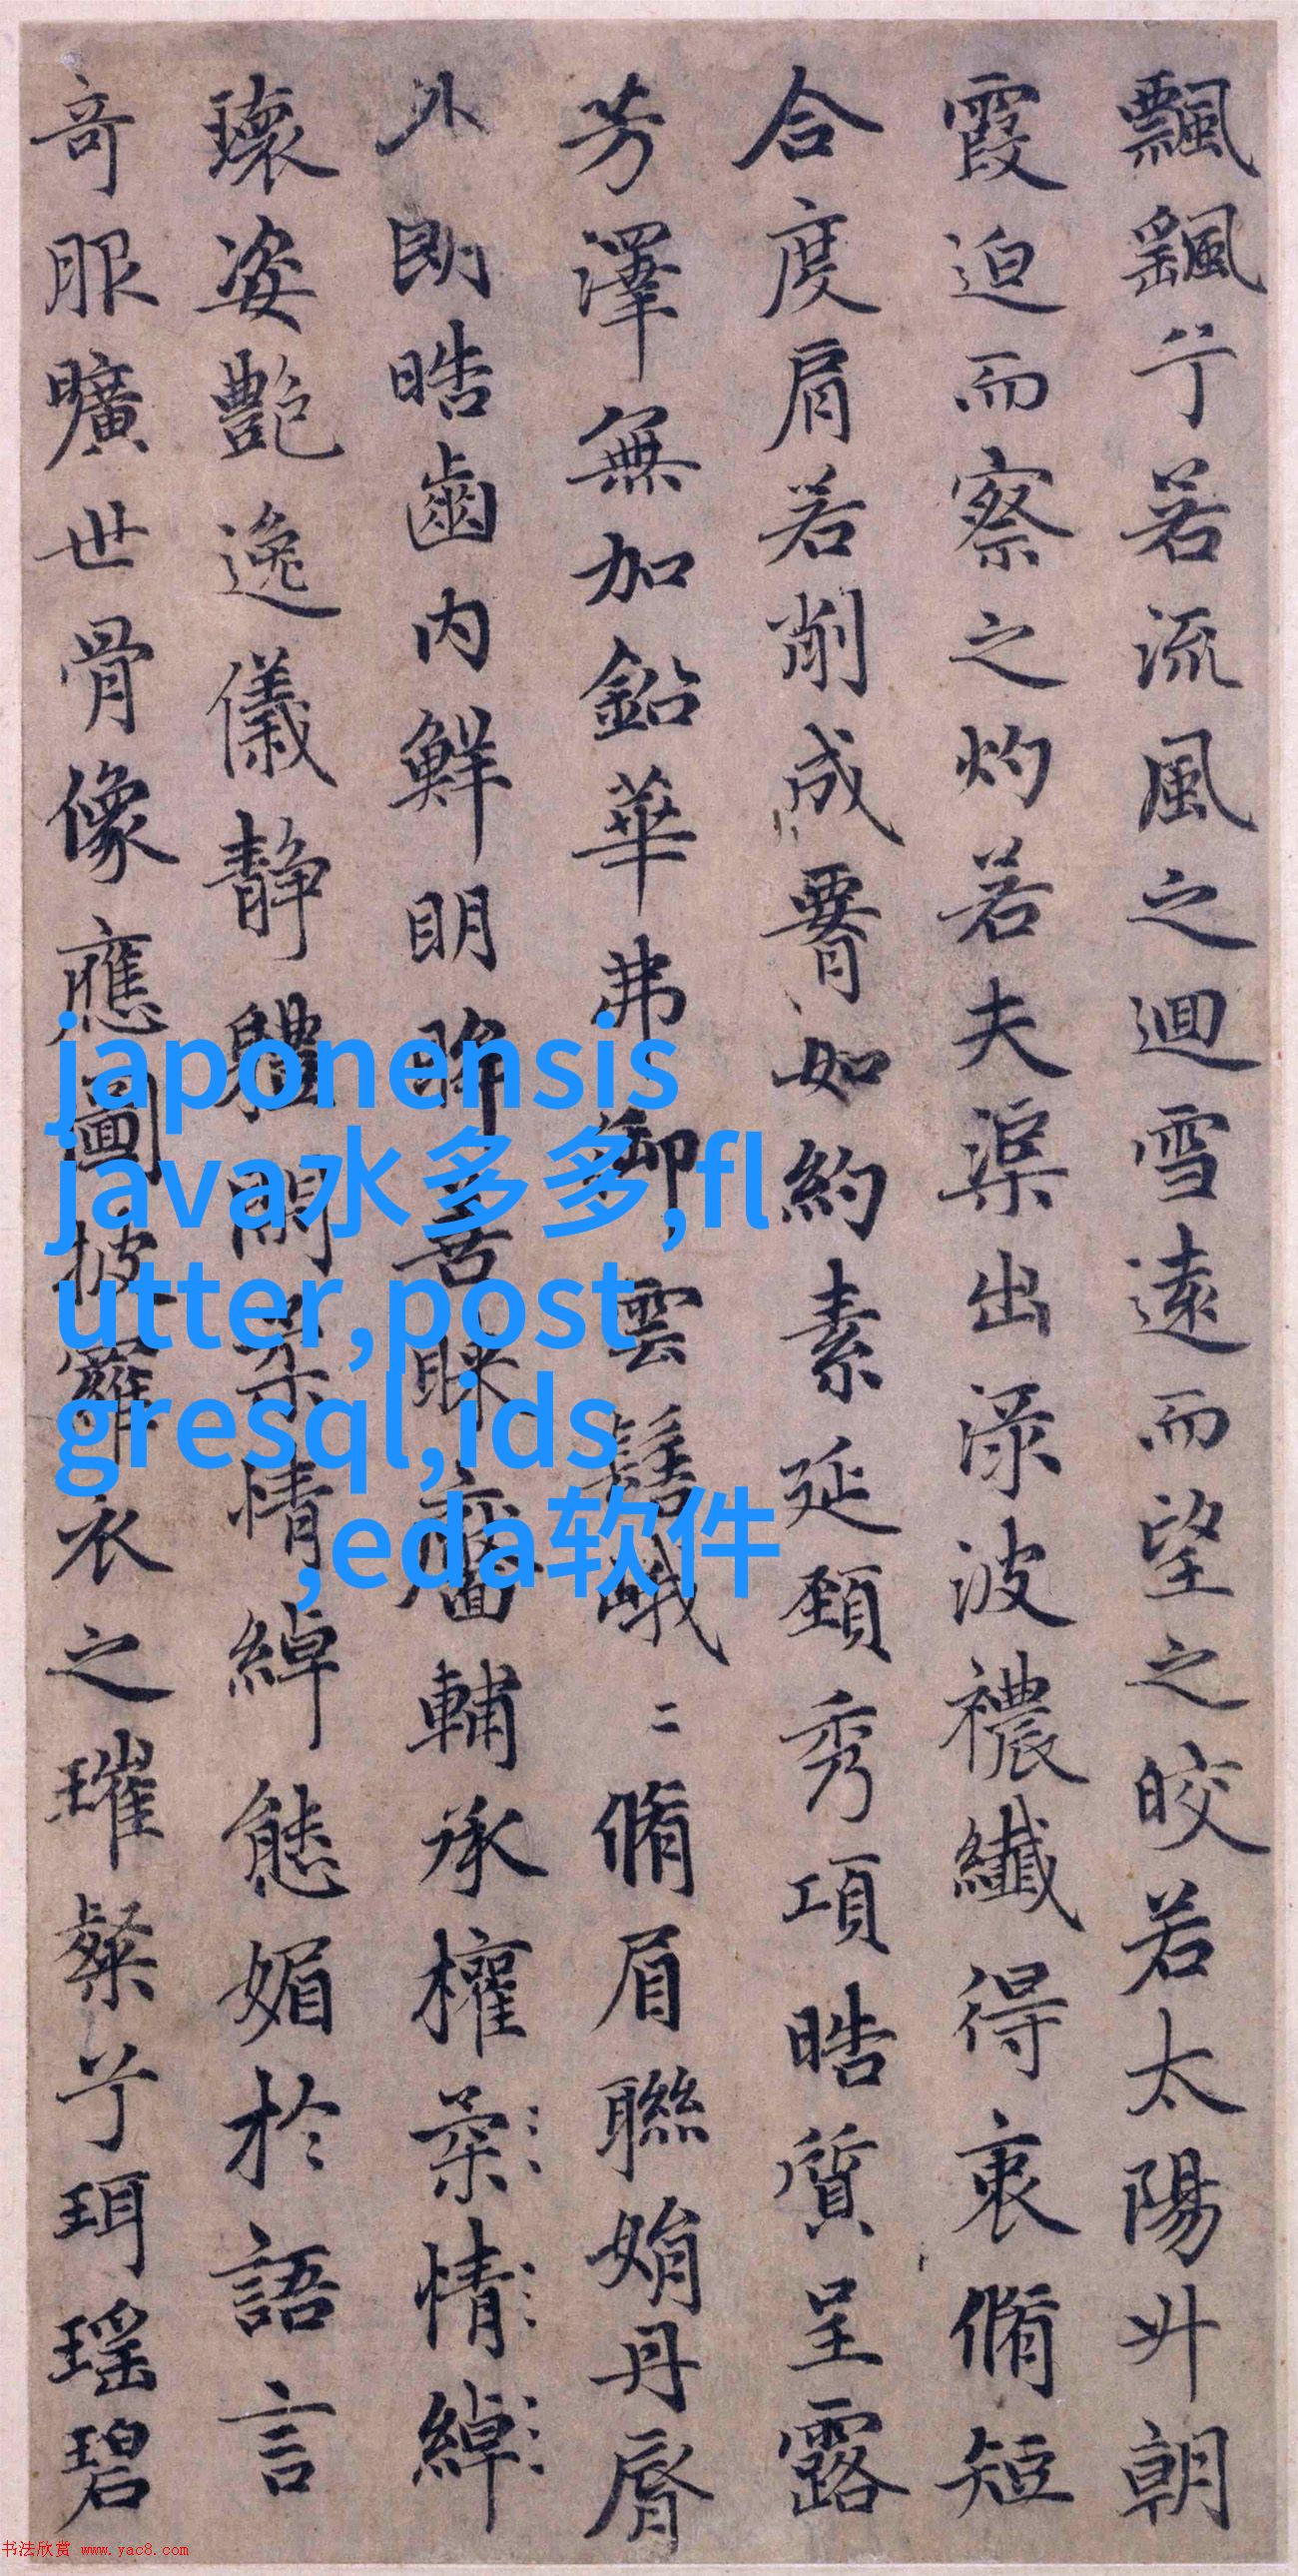 飄飖兮若流風之迴雪遠而望之皎若太陽升朝
霞迫而察之灼若夫渠出渌波襛纖得衷脩短
合度肩若削成腰如約素延頸秀項晧質呈露
芳澤無加鉛華弗御雲髻峨〻脩眉聯娟丹脣
外朗晧齒内鮮明眸善睞靨輔承權柔情綽
瓌姿艷逸儀靜體閑柔情綽態媚於語言
奇服曠世骨像應圖披羅衣之璀粲兮珥瑶碧
japonensis
java水多多,fl
utter,post
gresql,ids
,eda软件
书法欣赏 www.yac8.com